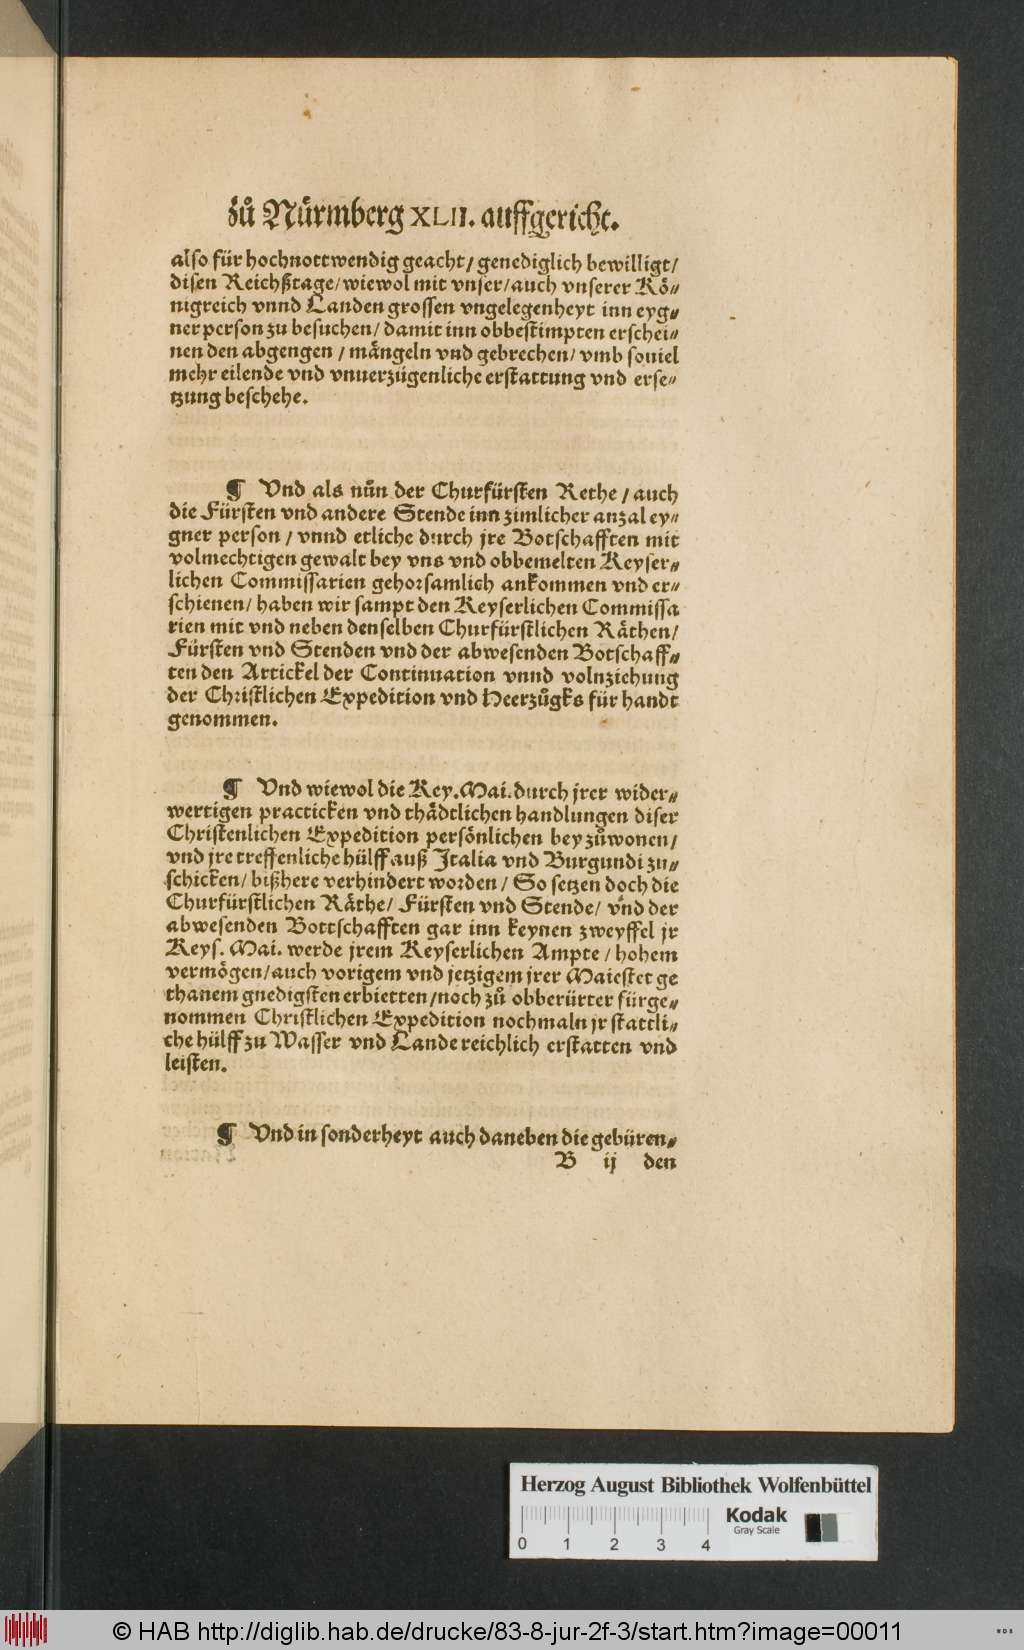 zů Nůrmberg XLII. auffgericht.
also für hochnottwendig geacht / genediglich bewilligt /
disen Reichßtage / wiewol mit vnser / auch vnserer Kö⸗
nigreich vnnd Landen grossen vngelegenheyt inn eyg⸗
ner person zu besuchen / damit inn obbestimpten erschei⸗
nen den abgengen / mängeln vnd gebrechen / vmb souiel
mehr eilende vnd vnuerzügenliche erstattung vnd erse⸗
tzung beschehe.
¶ Vnd als nůn der Churfürsten Rethe / auch
die Fürsten vnd andere Stende inn zimlicher anzal ey⸗
gner person / vnnd etliche durch jre Botschafften mit
volmechtigen gewalt bey vns vnd obbemelten Keyser⸗
lichen Commissarien gehorsamlich ankommen vnd er⸗
schienen / haben wir sampt den Keyserlichen Commissa
rien mit vnd neben denselben Churfürstlichen Räthen /
Fürsten vnd Stenden vnd der abwesenden Botschaff⸗
ten den Artickel der Continuation vnnd volnziehung
der Christlichen Expedition vnd Heerzůgks für handt
genommen.
¶ Vnd wiewol die Key. Mai. durch jrer wider⸗
wertigen practicken vnd thädtlichen handlungen diser
Christenlichen Expedition persönlichen bey zůwonen /
vnd jre treffenliche hülff auß Italia vnd Burgundi zu⸗
schicken / bißhere verhindert worden / So setzen doch die
Churfürstlichen Räthe / Fürsten vnd Stende / vnd der
abwesenden Bottschafften gar inn keynen zweyffel jr
Keys. Mai. werde jrem Keyserlichen Ampte / hohem
vermögen / auch vorigem vnd jetzigem jrer Maiestet ge
thanem gnedigsten erbietten / noch zů obberürter fürge⸗
nommen Christlichen Expedition nochmaln jr stattli⸗
che hülff zu Wasser vnd Lande reichlich erstatten vnd
leisten.
¶ Vnd in sonderheyt auch daneben die gebüren⸗
B ij den
Herzog August Bibliothek Wolfenbüttel
0 1 2 3 4
Kodak
Gray Scale
© HAB http://diglib.hab.de/drucke/83-8-jur-2f-3/start.htm?image=00011